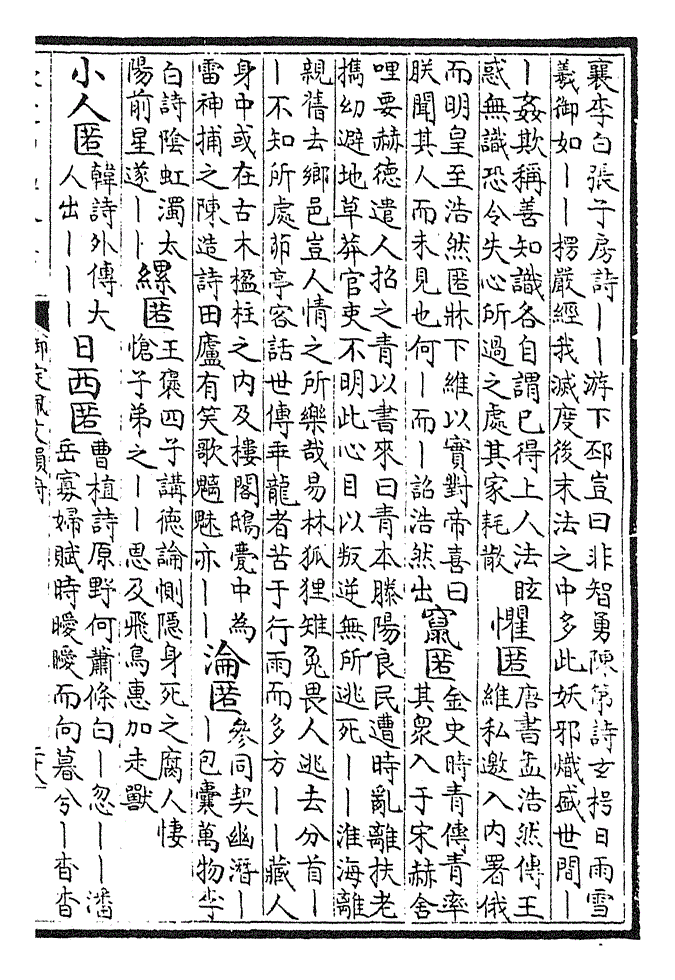 襄李白張子房詩丨丨游下邳豈曰非智勇陳第詩玄枵日雨雪
羲御如丨丨楞嚴經我滅度後末法之中多此妖邪熾盛世間丨
丨姦欺稱善知識各自謂已得上人法眩
惑無識恐令失心所過之處其家耗散
懼匿
唐書孟浩然傳王
維私邀入內署俄
而明皇至浩然匿牀下維以實對帝喜曰
朕聞其人而未見也何丨而丨詔浩然出
竄匿
金史時青傳青率
其衆入于宋赫舍
哩要赫德遣人招之青以書來曰青本滕陽良民遭時亂離扶老
攜幼避地草莽官吏不明此心目以叛逆無所逃死丨丨淮海離
親舊去鄉邑豈人情之所樂哉易林狐狸雉兔畏人逃去分首丨
丨不知所處茆亭客話世傳乖龍者苦于行雨而多方丨丨藏人
身中或在古木楹柱之內及樓閣鴟甍中為
雷神捕之陳造詩田廬有笑歌魑魅亦丨丨
淪匿
參同契幽潛丨
丨包囊萬物李
白詩陰虹濁太
陽前星遂丨丨
縲匿
王褒四子講德論惻隱身死之腐人悽
愴子弟之丨丨恩及飛鳥惠加走獸
小人匿
韓詩外傳大
人出丨丨丨
日西匿
曹植詩原野何蕭條白丨忽丨丨潘
岳寡婦賦時曖曖而向暮兮丨杳杳
御定佩文韻府